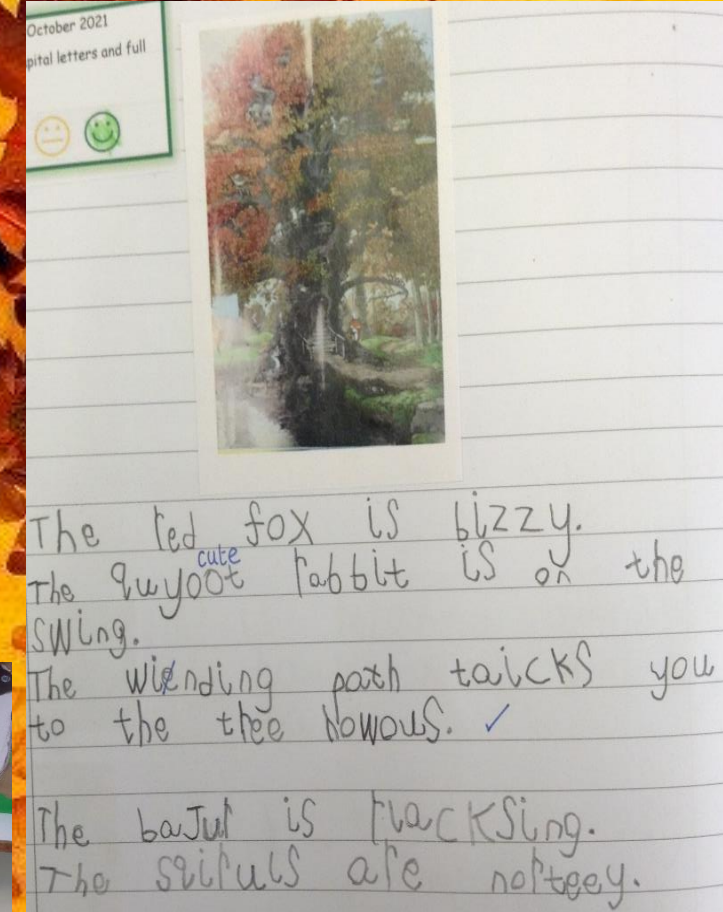 October 2021
pital letters and full
The red fox is bizzy.
cute
The quyoot rabbit is on the
swing.
The wiending path taicks you
to the tree howous. ✓
The bajur is rlacksing.
The sqiruls are norteey.